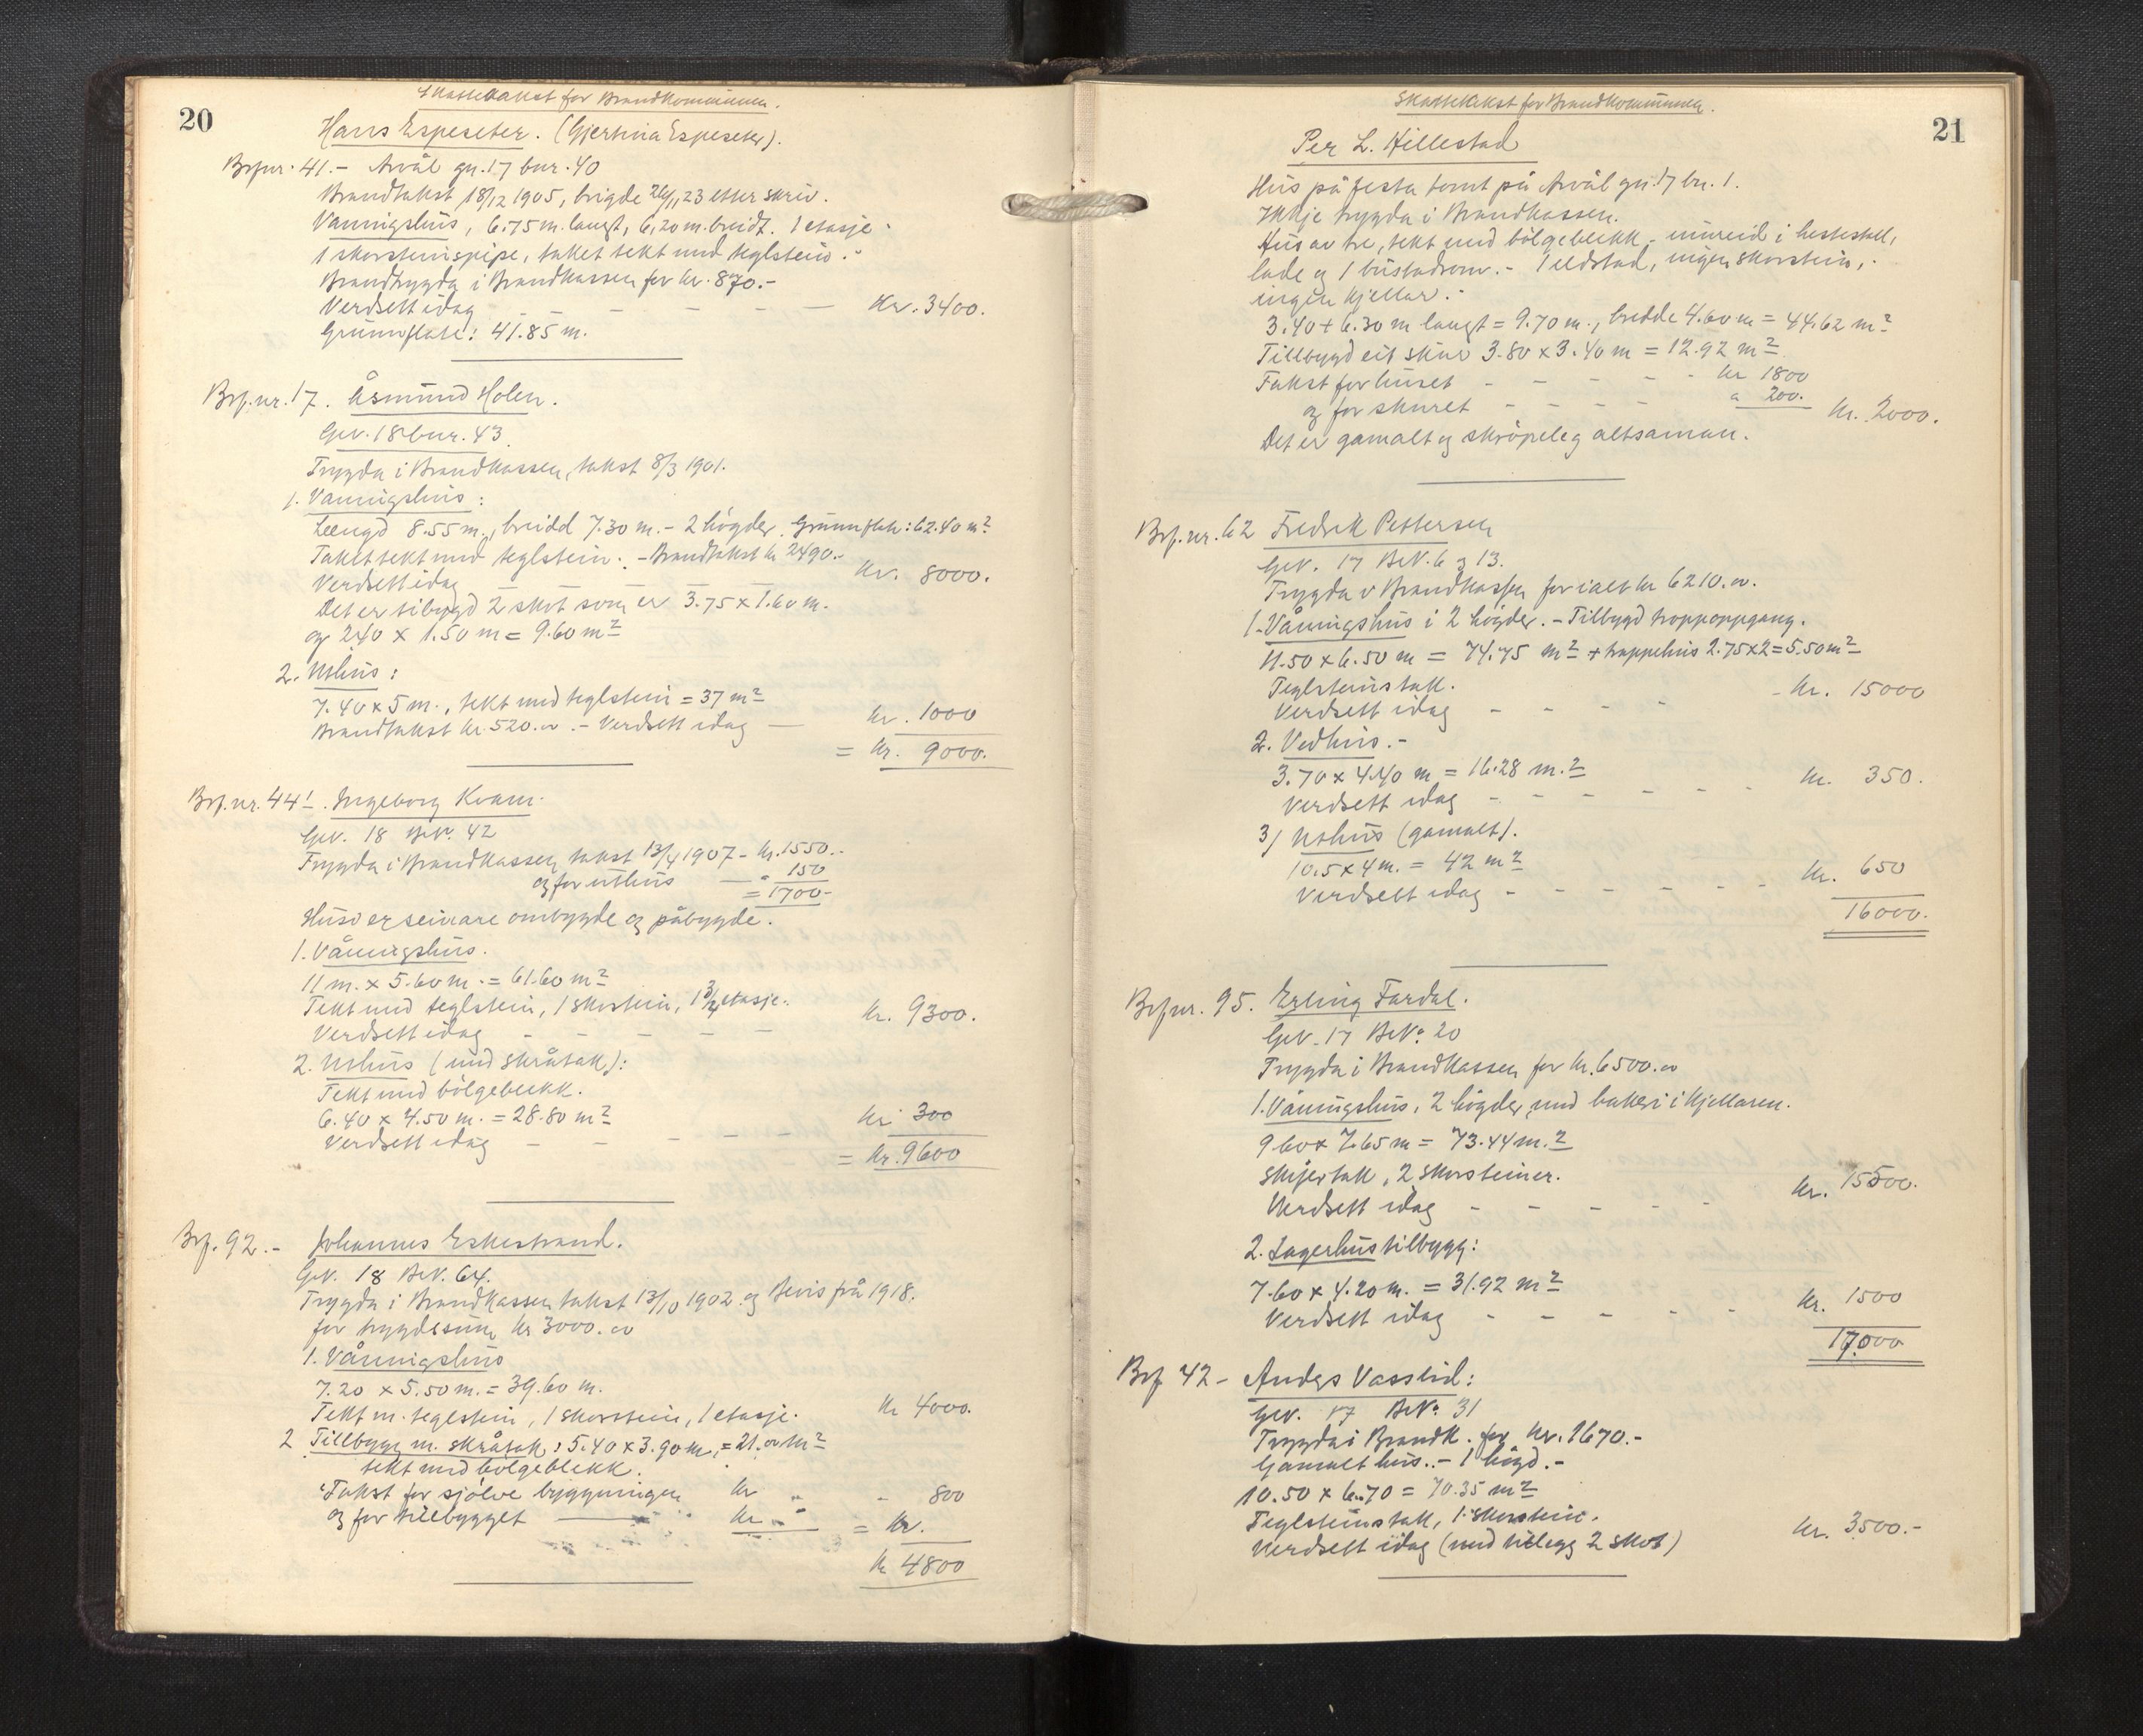 20
Skattetakst for Brandkommunen.
Hans Espeseter. (Gjertina Espeseter).
Brf.nr. 41.- Årvål gn. 17 bnr. 40
Brandtakst 18/12 1905, brigde 26/1 23 etter skriv.
Vaaningshus, 6.75 m. langt, 6.20 m. breidt. 1 etasje.
1 skorsteinspipe, taket tekt med teglstein.-
Brandtrygda i Brandkassen for kr. 870.-
Verdsett idag - - - - Kr. 3400.
Grunnflate: 41.85 m.
Brf.nr. 17. Åsmund Holen.
Gnr. 18 bnr. 43.
Trygda i Brandkassen, takst 8/3 1901.
1. Vaaningshus:
Lengd 8.55 m., breidd 7.30 m. - 2 högder. Grunnflate: 62.40 m2
Taket tekt med teglstein. - Brandtakst kr 2490.-
Verdsett idag - - - Kr. 8000.
Det er tibygd 2 skot som er 3.75 x 1.60 m.
og 2.40 x 1.50 m = 9.60 m2
2. Uthus:
7.40 x 5 m., tekt med teglstein = 37 m2
Brandtakst kr. 520.oo .- Verdsett idag — kr. 1000
= kr. 9000.
Brf.nr. 441. Ingeborg Kvam.
GN. 18 BN. 42
Trygda i Brandkassen, takst 13/4 1907 - kr. 1550.-
og for uthus — " 150
= 1700-
Huso er seinare ombygde og påbygde.
1. Våningshus.
11 m. x 5.60 m. = 61.60 m2
Tekt med teglstein, 1 skorstein, 1 3/4 etasje.
Verdsett idag - - - - - Kr. 9300.
2. Uthus (med skråtak):
Tekt med bölgeblekk.
6.40 x 4.50 m. = 28.80 m2
Verdsett idag - - - - - kr 300
= kr. 9600
Brf. 92.- Johannes Eskestrand.
GN. 18 BN. 64.
Trygda i Brandkassen takst 13/10 1902. og Bevis frå 1918.
for trygdesum kr 3000.oo
1. Våningshus
7.20 x 5.50 m. = 39.60 m.
Tekt m. teglstein, 1 skorstein, 1 etasje. Kr 4000.
2 Tillbygg m. skråtak: 5.40 x 3.90 m. = 21.oo m2
tekt med bölgeblekk.
Takst for sjölve byggningen kr " - 800
og for tillbygget — kr " = kr.
kr 4800
21
Skattetakst for Brandkommunen.
Per L. Hillestad
Hus på festa tomt på Årvål gn. 17 bn. 1.
Ikkje trygda i Brandkassen.
Hus av tre, tekt med bölgeblekk - innreid i hestestall,
lade og 1 bustadrom. - 1 eldstad, ingen skorstein,
ingen kjellar.-
3.40 + 6.30 m langt = 9.70 m., bredde 4.60 m = 44.62 m2
Tillbygd eit skur 3.80 x 3.40 m = 12.92 m2
Takst for huset - - - - - kr 1800
og for skuret - - - - " 200. kr. 2000.
Det er gamalt og skröpeleg altsaman.
Brf.nr. 62 Fredrik Pettersen
GN. 17 BN. 6 og 13.
Trygda v Brandkassen for ialt kr 6210.oo.
1. Våningshus i 2 högder. - Tilbygd troppoppgang.
11.50 x 6.50 m = 74.75 m2 + trappehus 2.75 x 2 = 5.50 m2
Teglsteinstak.
Verdsett idag - - - - - kr. 15000
2. Vedhus.-
3.70 x 4.40 m = 16.28 m.2
Verdsett idag - - - - - - kr. 350.
3) Uthus (gamalt).
10.5 x 4 m. = 42 m2
Verdsett idag - - - - - - kr. 650
16000.
Brf.nr. 95. Erling Fardal.
GN. 17 BN. 20
Trygda i Brandkassen for kr. 6500.oo
1. Våningshus, 2 högder med bakeri i kjellaren.
9.60 x 7.65 m = 73.44 m.2
Skifertak, 2 skorsteiner.
Verdsett idag - - - - - kr. 15500.
2. Lagerhus tilbygg:
7.60 x 4.20 m. = 31.92 m2
Verdsett idag - - - - - kr. 1500
17000
Brf 42 - Anders Vasslid:
GN. 17 BN. 31
Trygda i Brandk. for kr. 1670.-
Gamalt hus. - 1 högd.-
10.50 x 6.70 = 70.35 m2
Teglsteinstak, 1 skorstein.
Verdsett idag (med tillegg 2 skot) kr. 3500.-